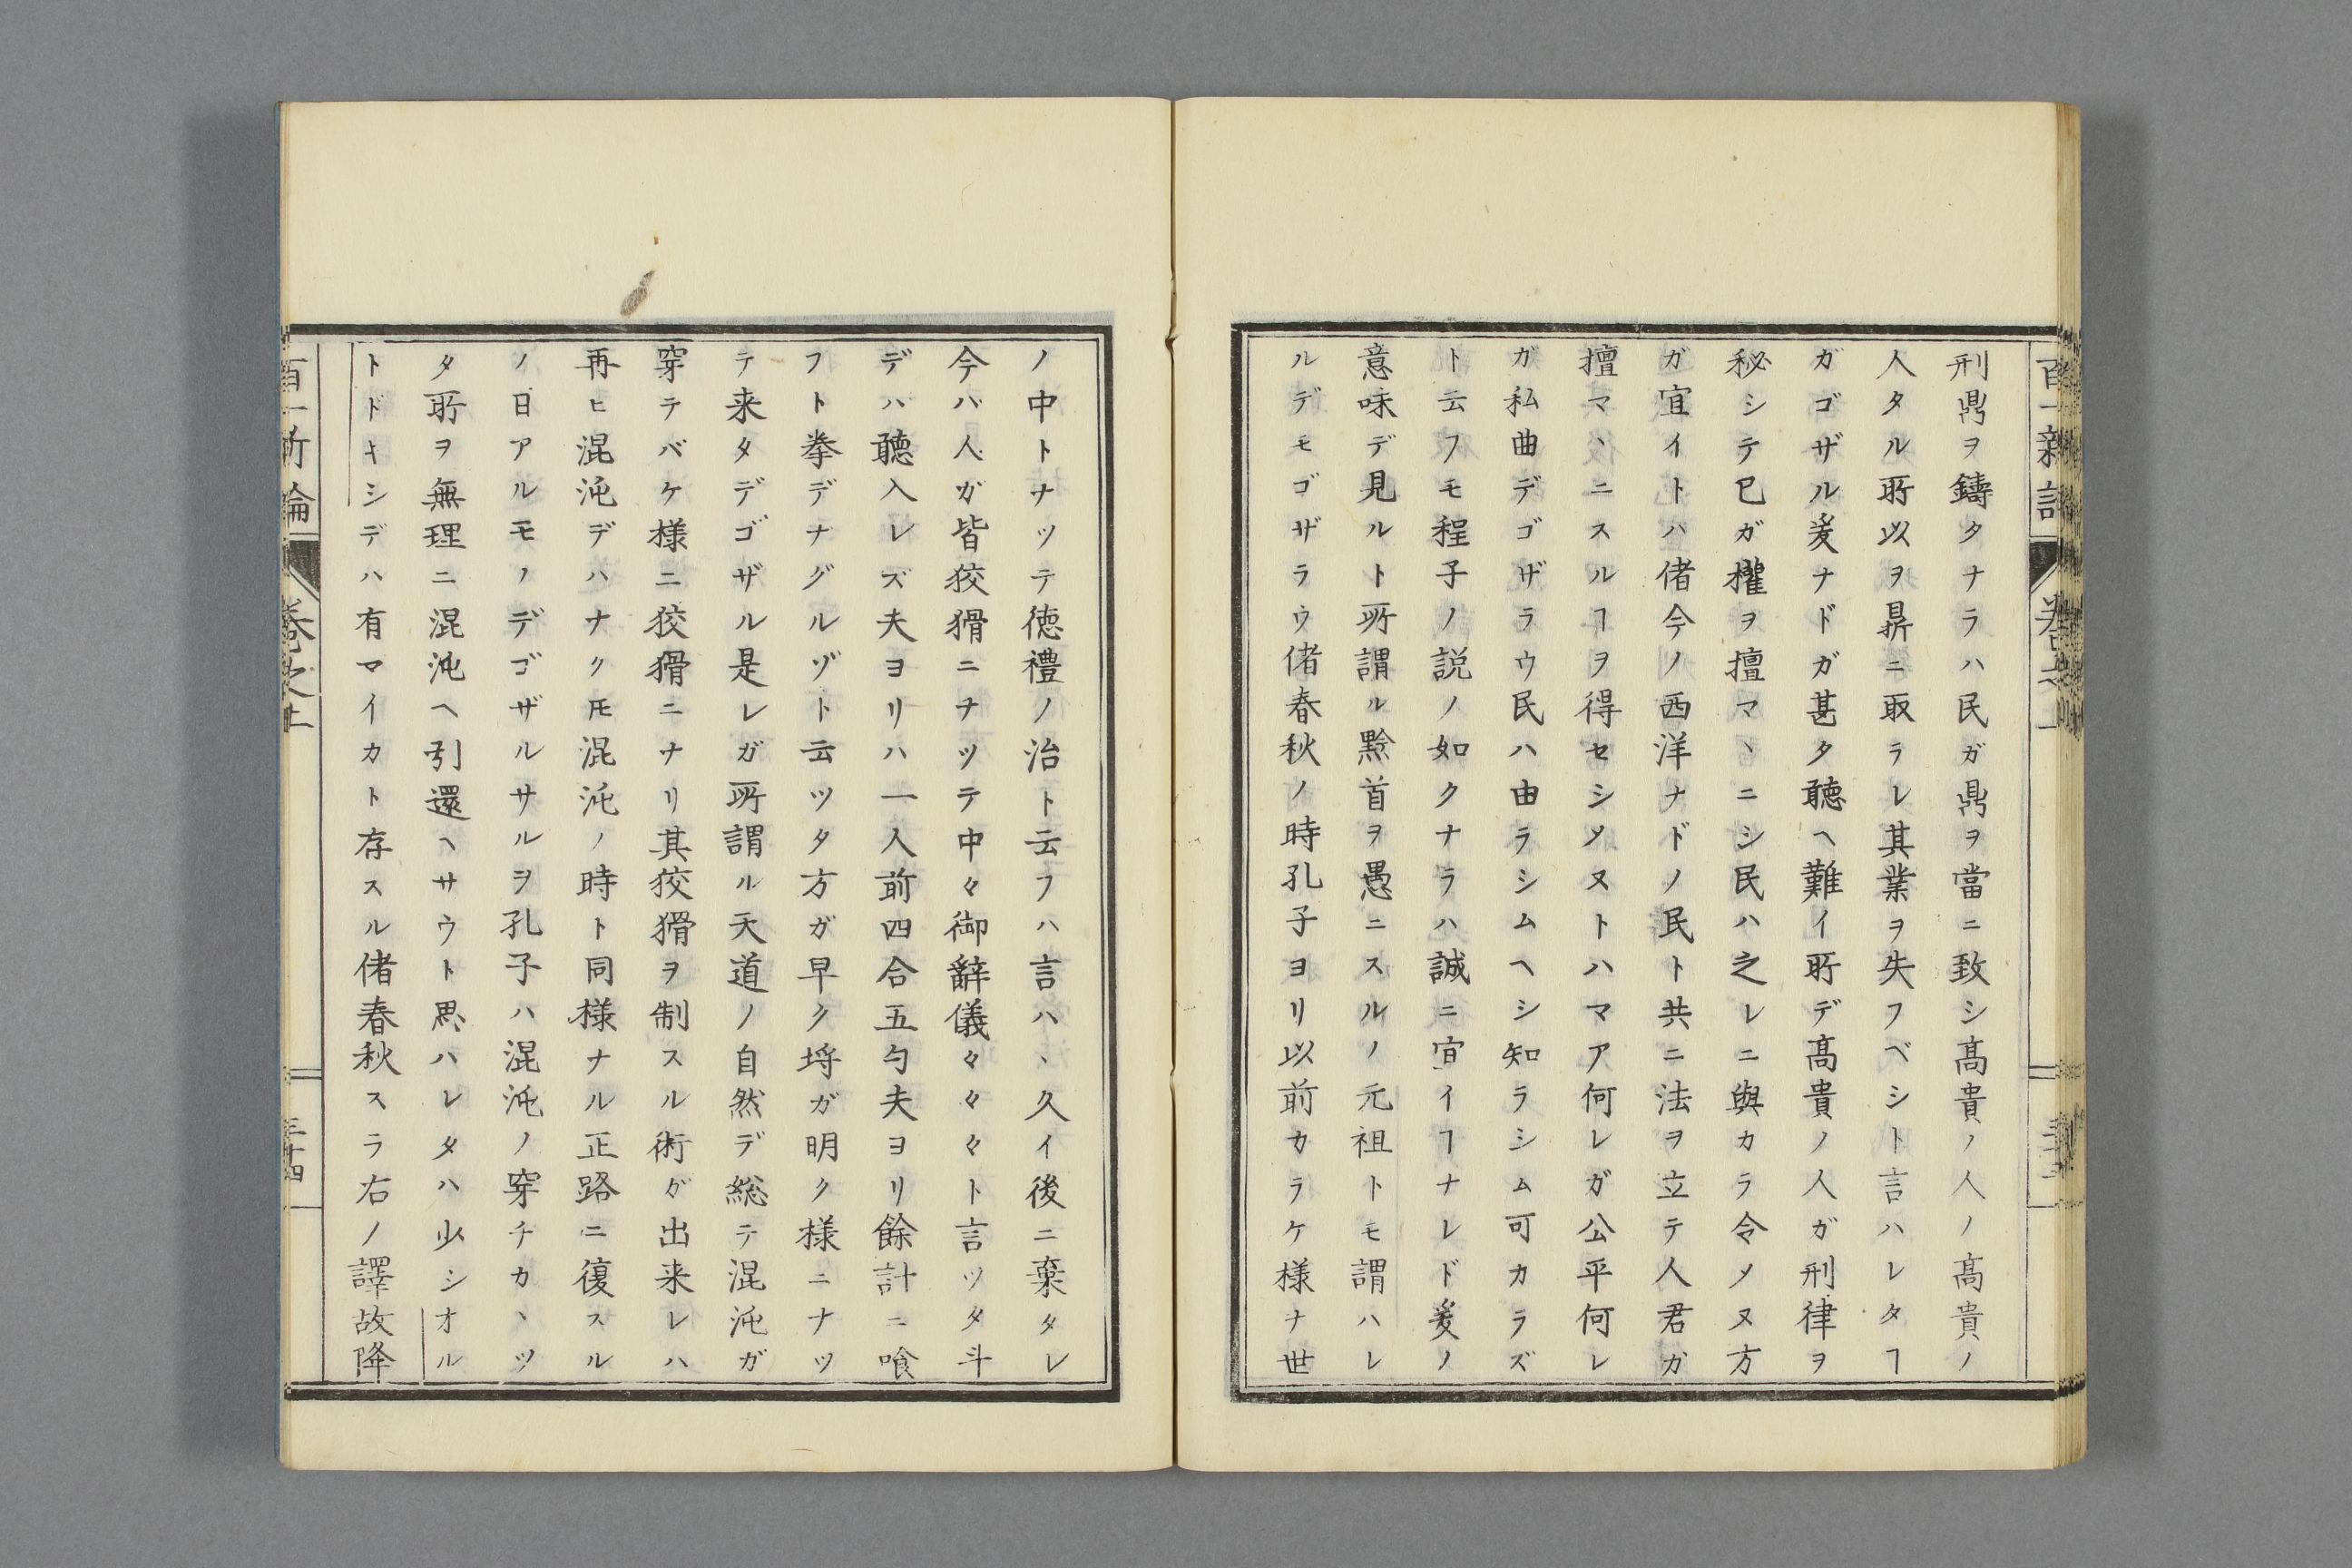 刑鼎ヲ鑄タナラハ民ガ鼎ヲ當ニ致シ髙貴ノ人ノ髙貴ノ
人タル所以ヲ鼎ニ取ラレ其業ヲ失フベシト言ハレタヿ
ガゴザル爰ナドガ甚タ聴ヘ難イ所デ髙貴ノ人ガ刑律ヲ
秘シテ已ガ權ヲ擅マヽニシ民ハ之レニ與カラ令メヌ方
ガ宜イトハ偖今ノ西洋ナドノ民ト共ニ法ヲ立テ人君ガ
擅マヽニスルヿヲ得セシメヌトハマア何レガ公平何レ
ガ私曲デゴザラウ民ハ由ラシムヘシ知ラシム可カラズ
ト云フモ程子ノ説ノ如クナラハ誠ニ宜イヿナレド爰ノ
意味デ見ルト所謂ル黔首ヲ愚ニスルノ元祖トモ謂ハレ
ルデモゴザラウ偖春秋ノ時孔子ヨリ以前カラケ様ナ世
ノ中トナツテ徳禮ノ治ト云フハ言ハヽ久イ後ニ棄タレ
今ハ人ガ皆狡猾ニナツテ中々御辭儀々々々ト言ツタ斗
デハ聴入レズ夫ヨリハ一人前四合五勺夫ヨリ餘計ニ喰
フト拳デナグルゾト云ツタ方ガ早ク埒ガ明ク様ニナツ
テ来タデゴザル是レガ所謂ル天道ノ自然デ総テ混沌ガ
穿テバケ様ニ狡猾ニナリ其狡猾ヲ制スル術ガ出来レハ
再ヒ混沌デハナクモ混沌ノ時ト同様ナル正路ニ復スル
ノ日アルモノデゴザルサルヲ孔子ハ混沌ノ穿チカヽツ
タ所ヲ無理ニ混沌ヘ引還ヘサウト思ハレタハ少シオル
トドキシデハ有マイカト存スル偖春秋スラ右ノ譯故降
百一新論
巻之上
三十四